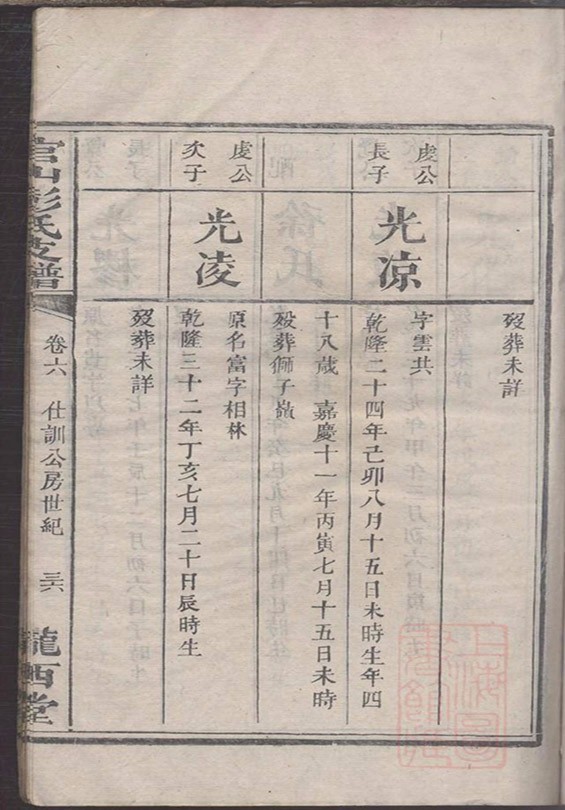 歿葬未詳
虔公
長子
光凉
字雲共
乾隆二十四年己卯八月十五日未時生年四
十八歲 嘉慶十一年丙寅七月十五日未時
歿葬獅子嶺
虔公
次子
光凌
原名富字相林
乾隆三十二年丁亥七月二十日辰時生
歿葬未詳
官山彭氏支譜
卷六 仕訓公房世紀 三六
隴西堂